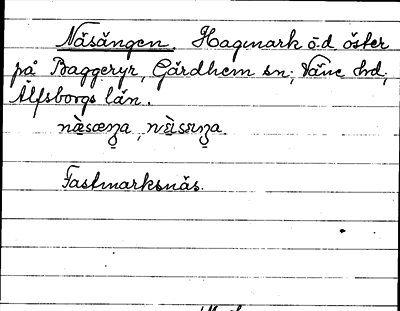 Näsängen. Hagmark o.d öster
på Baggeryr, Gärdhem sn; Väne hd,
Älfsborgs län.
Fastmarksnäs.